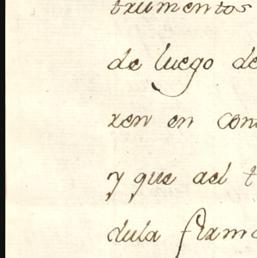 trumentos
de luego de
ren en con
y que ael t
dula firm